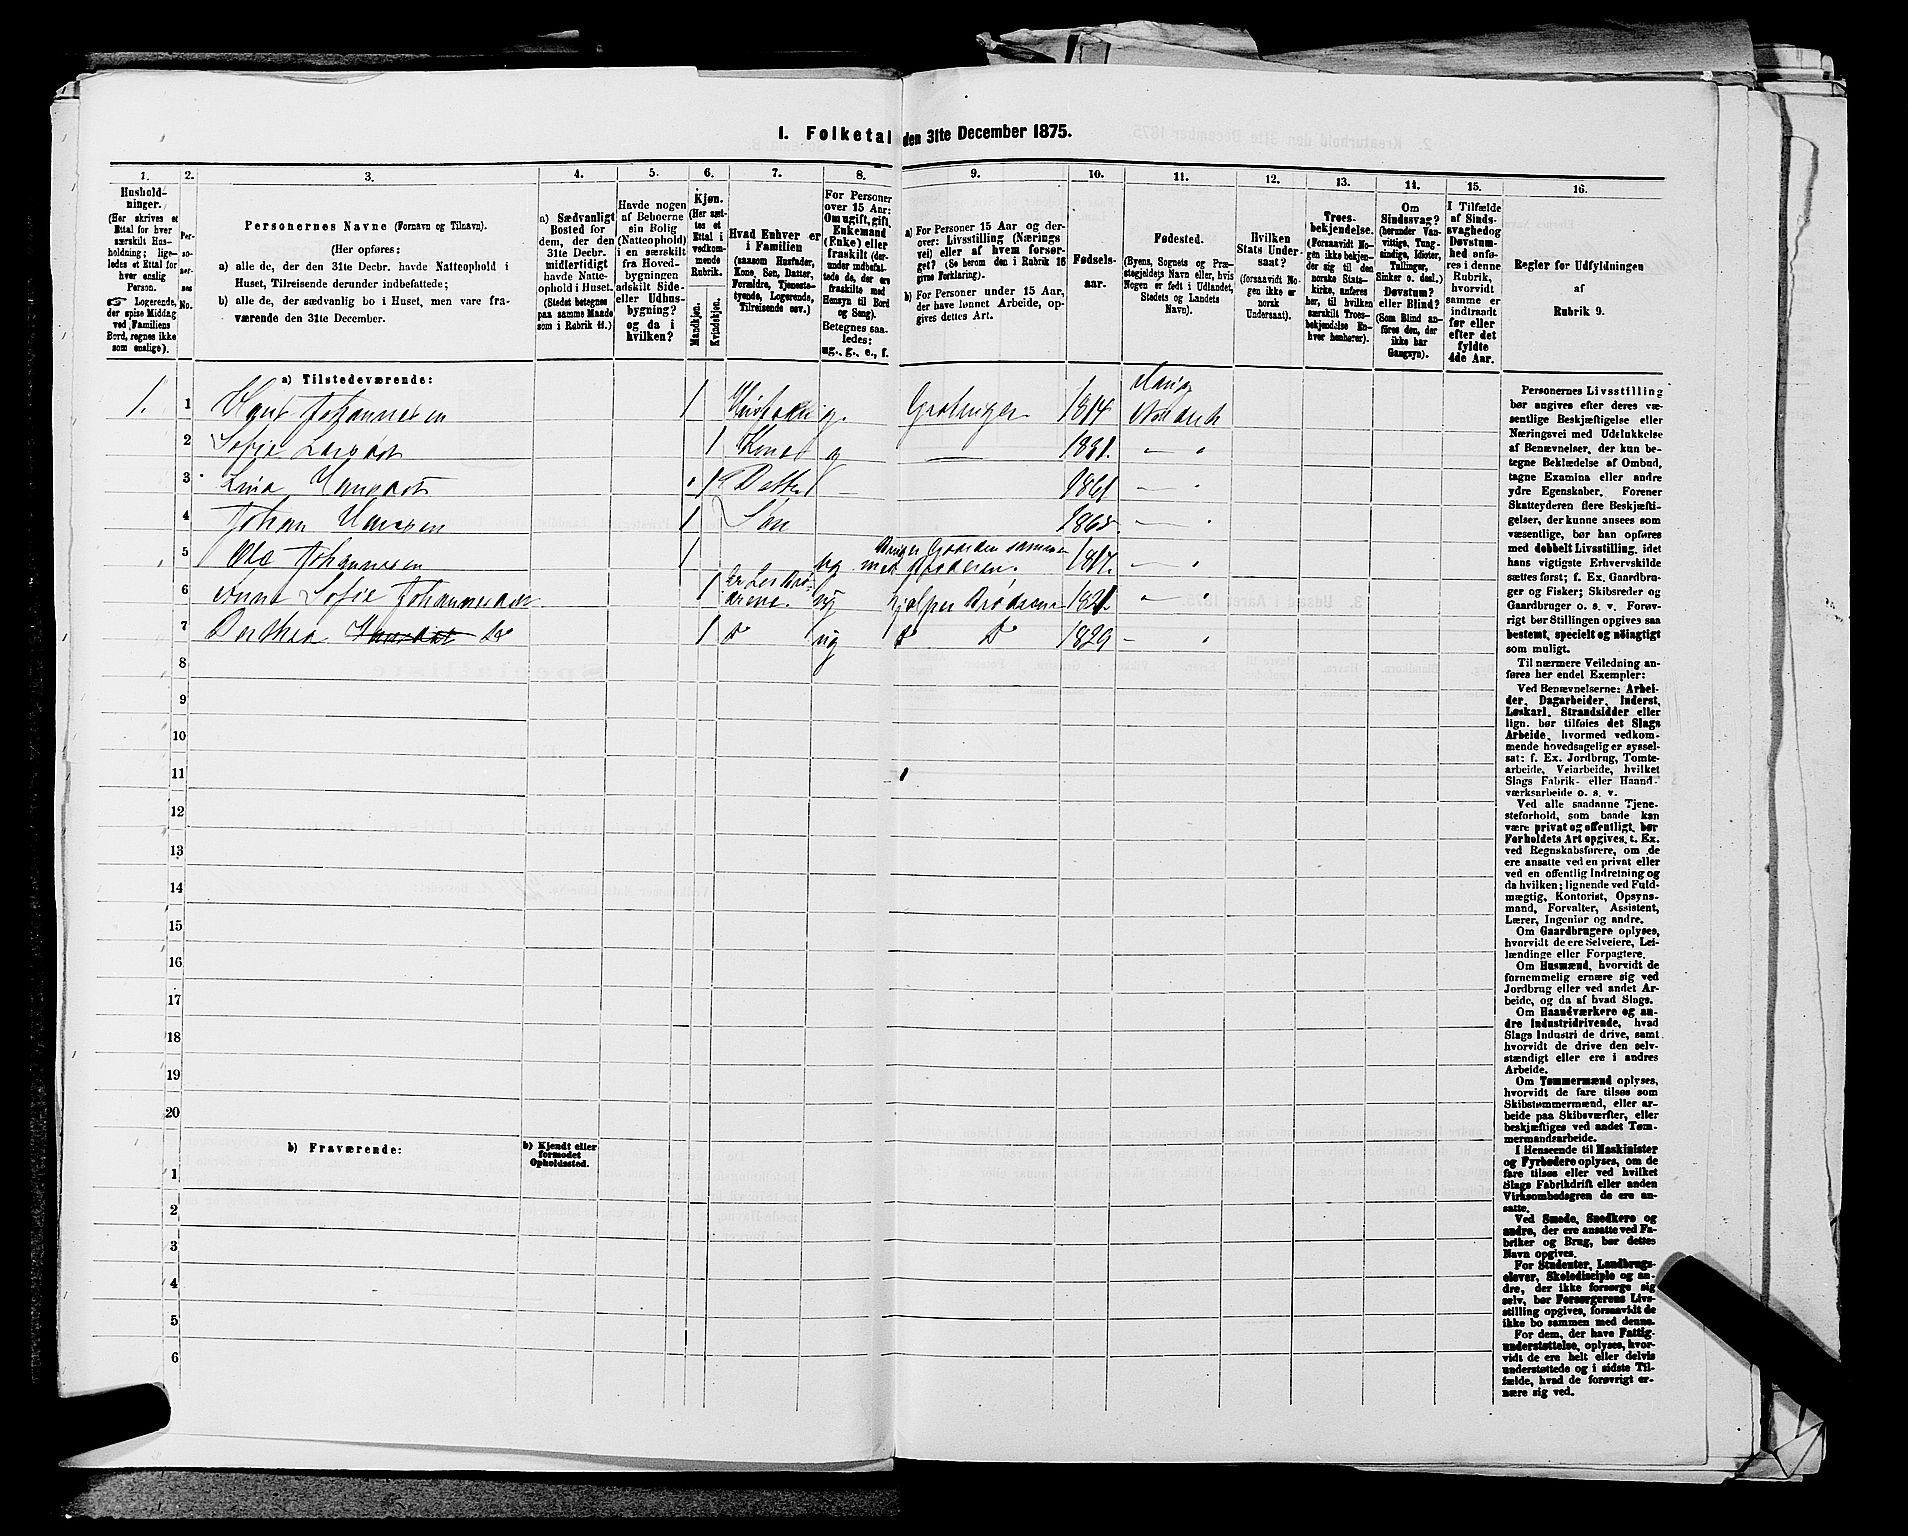 I. Folketal den 31te December 1875.
1. 2. 3. 4. 5. 6. 7. 8. 9. 10. 11. 12. 13. 14. 15. 16.
Hushold-
ninger.
(Her skrives et
Ettal for hver
særskilt Hus-
holdning; lige-
ledes et Ettal for
hver enslig
Person.
☞ Logerende,
der spise Middag
ved Familiens
Bord, regnes ikke
som enslige).
Per-
so-
ner-
nes
No.
Personernes Navne (Fornavn og Tilnavn).
(Her opføres:
a) alle de, der den 31te Decbr. havde Natteophold i
Huset, Tilreisende derunder indbefattede;
b) alle de, der sædvanlig bo i Huset, men vare fra-
værende den 31te December.
a) Sædvanligt
Bosted for
dem, der den
31te Decbr.
midlertidigt
havde Natte-
ophold i Huset.
(Stedet betegnes
paa samme Maade
som i Rubrik 11.)
Havde nogen
af Beboerne
sin Bolig
(Natteophold)
i en særskilt
fra Hoved-
bygningen
adskilt Side-
eller Udhus-
bygning?
og da i
hvilken?
Kjøn.
(Her sæt-
tes et
Ettal i
vedkom-
mende
Rubrik.
Mandkjøn.
Kvindekjøn.
Hvad Enhver er
i Familien
(saasom Husfader,
Kone, Søn, Datter,
Forældre, Tjeneste-
tyende, Logerende,
Tilreisende osv.)
For Personer
over 15 Aar:
Om ugift, gift,
Enkemand
(Enke) eller
fraskilt (der-
under indbefat-
tede de, der ere
fraskilte med
Hensyn til Bord
og Seng).
Betegnes saa-
ledes:
ug., g., e., f.
a) For Personer 15 Aar og der-
over: Livsstilling (Nærings
vei) eller af hvem forsør-
get? (Se herom den i Rubrik 16
givne Forklaring).
b) For Personer under 15 Aar,
der have lønnet Arbeide, op-
gives dettes Art.
Fødsels-
aar.
Fødested.
(Byens, Sognets og Præ-
stegjeldets Navn eller, hvis
Nogen er født i Udlandet,
Stedets og Landets
Navn).
Hvilken
Stats Under-
saat?
(forsaavidt No-
gen ikke er
norsk
Undersaat).
Troes-
bekjendelse.
(Forsaavidt No-
gen ikke bekjen-
der sig til den
norske Stats-
kirke, anføres
her, til hvilken
særskilt Troes-
bekjendelse En-
hver henhører).
Om
Sindssvag?
(herunder Van-
vittige, Tung-
sindige, Idioter,
Tullinger,
Sinker o. desl.)
Døvstum?
eller Blind?
(Som Blind an-
føres den, der
ikke har
Gangsyn).
I Tilfælde
af Sinds-
svaghed og
Døvstum-
hed anfø-
res i denne
Rubrik,
hvorvidt
samme er
indtraadt
før eller
efter det
fyldte
4de Aar.
Regler for Udfyldningen
af
Rubrik 9.
a) Tilstedeværende:
1. 1 Hans Johannesen 1 Husfader g. 1814
2 Sofie Larsdat 1 Kone g — 1831. — "
3 Hansdat 1 Datter 1861 — "
4 Johan Hansen 1 Søn — "
5 Ole Johannesen 1 ug Bruger Gaarden sammen
med Broderen. — "
6 Anna Sofie Johannesdat 1 ug hjælper Brødrene — "
7 Dorthea Do 1 Do ug Do Do 1829 — "
8
9
10
11
12
13
14
15
16
17
18
19
20
b) Fraværende:
b) Kjendt eller
formodet
Opholdssted.
1
2
3
4
5
6
Personernes Livsstilling
bør angives efter deres væ-
sentlige Beskjæftigelse eller
Næringsvei med Udelukkelse
af Benævnelser, der kun be-
tegne Beklædelse af Ombud,
tagne Examina eller andre
ydre Egenskaber. Forener
Skatteyderen flere Beskjæfti-
gelser, der kunne ansees som
væsentlige, bør han opføres
med dobbelt Livsstilling, idet
hans vigtigste Erhvervskilde
sættes først; f. Ex. Gaardbru-
ger og Fisker; Skibsreder og
Gaardbruger o. s. v. Forøv-
rigt bør Stillingen opgives saa
bestemt, specielt og nøiagtigt
som muligt.
Til nærmere Veiledning an-
føres her endel Exempler:
Ved Benævnelserne: Arbei-
der, Dagarbeider, Inderst,
Løskarl, Strandsidder eller
lign. bør tilføies det Slags
Arbeide, hvormed vedkom-
mende hovedsagelig er syssel-
sat: f. Ex. Jordbrug, Tomte-
arbeide, Veiarbeide, hvilket
Slags Fabrik- eller Haand-
værksarbeide o. s. v.
Ved alle saadanne Tjene-
steforhold, som baade kan
være privat og offentligt, bør
Forholdets Art opgives, t. Ex.
ved Regnskabsførere, om de
ere ansatte ved en privat eller
ved en offentlig Indretning og
da hvilken; lignende ved Fuld-
mægtig, Kontorist, Opsyns-
mand, Forvalter, Assistent,
Lærer, Ingeniør og andre.
Om Gaardbrugere oplyses,
hvorvidt de ere Selveiere, Lei-
lændinge eller Forpagtere.
Om Husmænd, hvorvidt de
fornemmelig ernære sig ved
Jordbrug eller ved andet Ar-
beide, og da af hvad Slags.
Om Haandværkere og an-
dre Industridrivende, hvad
Slags Industri de drive, samt
hvorvidt de drive den selv-
stændigt eller ere i andres
Arbeide.
Om Tømmermænd oplyses,
hvorvidt de fare tilsøs som
Skibstømmermænd, eller ar-
beide paa Skibsværfter, eller
beskjæftiges ved andet Tøm-
mermandsarbeide.
I Henseende til Maskinister
og Fyrbødere oplyses, om de
fare tilsøs eller ved hvilket
Slags Fabrikdrift eller anden
Virksomhedsgren de ere an-
satte.
Ved Smede, Snedkere og
andre, der ere ansatte ved Fa-
briker og Brug, bør dettes
Navn opgives.
For Studenter, Landbrugs-
elever, Skoledisciple og an-
dre, der ikke forsørge sig
selv, bør Forsørgerens Livs-
stilling opgives, forsaavidt de
ikke bo sammen med denne.
For dem, der have Fattig-
understøttelse, oplyses, hvor-
vidt de ere helt eller delvis
understøttede og i sidste Til-
fælde, hvad de forøvrigt er-
nære sig ved.